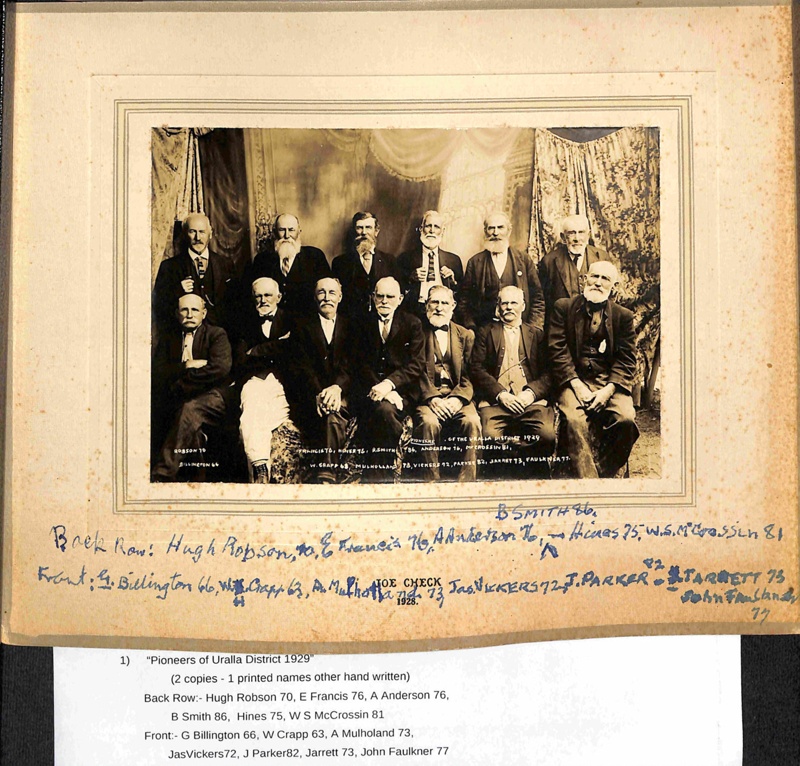 PIONEERS OF THE URALLA DISTRICT 1929
ROBSON 70 FRANCIS 76, HINES 75, B SMITH 86, ANDERSON 76, McCROSSIN 81,
BILLINGTON 66 W. CRAPP 63, MULHOLLAND 73, VICKERS 72, PARKER 82, JARRETT 73, FAULKNER 77.
B SMITH 86,
Back Row: Hugh Robson, 70, E Francis 76, A Anderson 76, Hines 75, W.S. McCrossin 81
Front: G. Billington 66, W. Crapp 63, A. Mulholland 73, Jas. VICKERS 72, J. PARKER 82 JARRETT 73
John Faulkner
77
JOE CHECK
1928.
1) "Pioneers of Uralla District 1929"
(2 copies - 1 printed names other hand written)
Back Row:- Hugh Robson 70, E Francis 76, A Anderson 76,
B Smith 86, Hines 75, W S McCrossin 81
Front:- G Billington 66, W Crapp 63, A Mulholand 73,
JasVickers72, J Parker82, Jarrett 73, John Faulkner 77